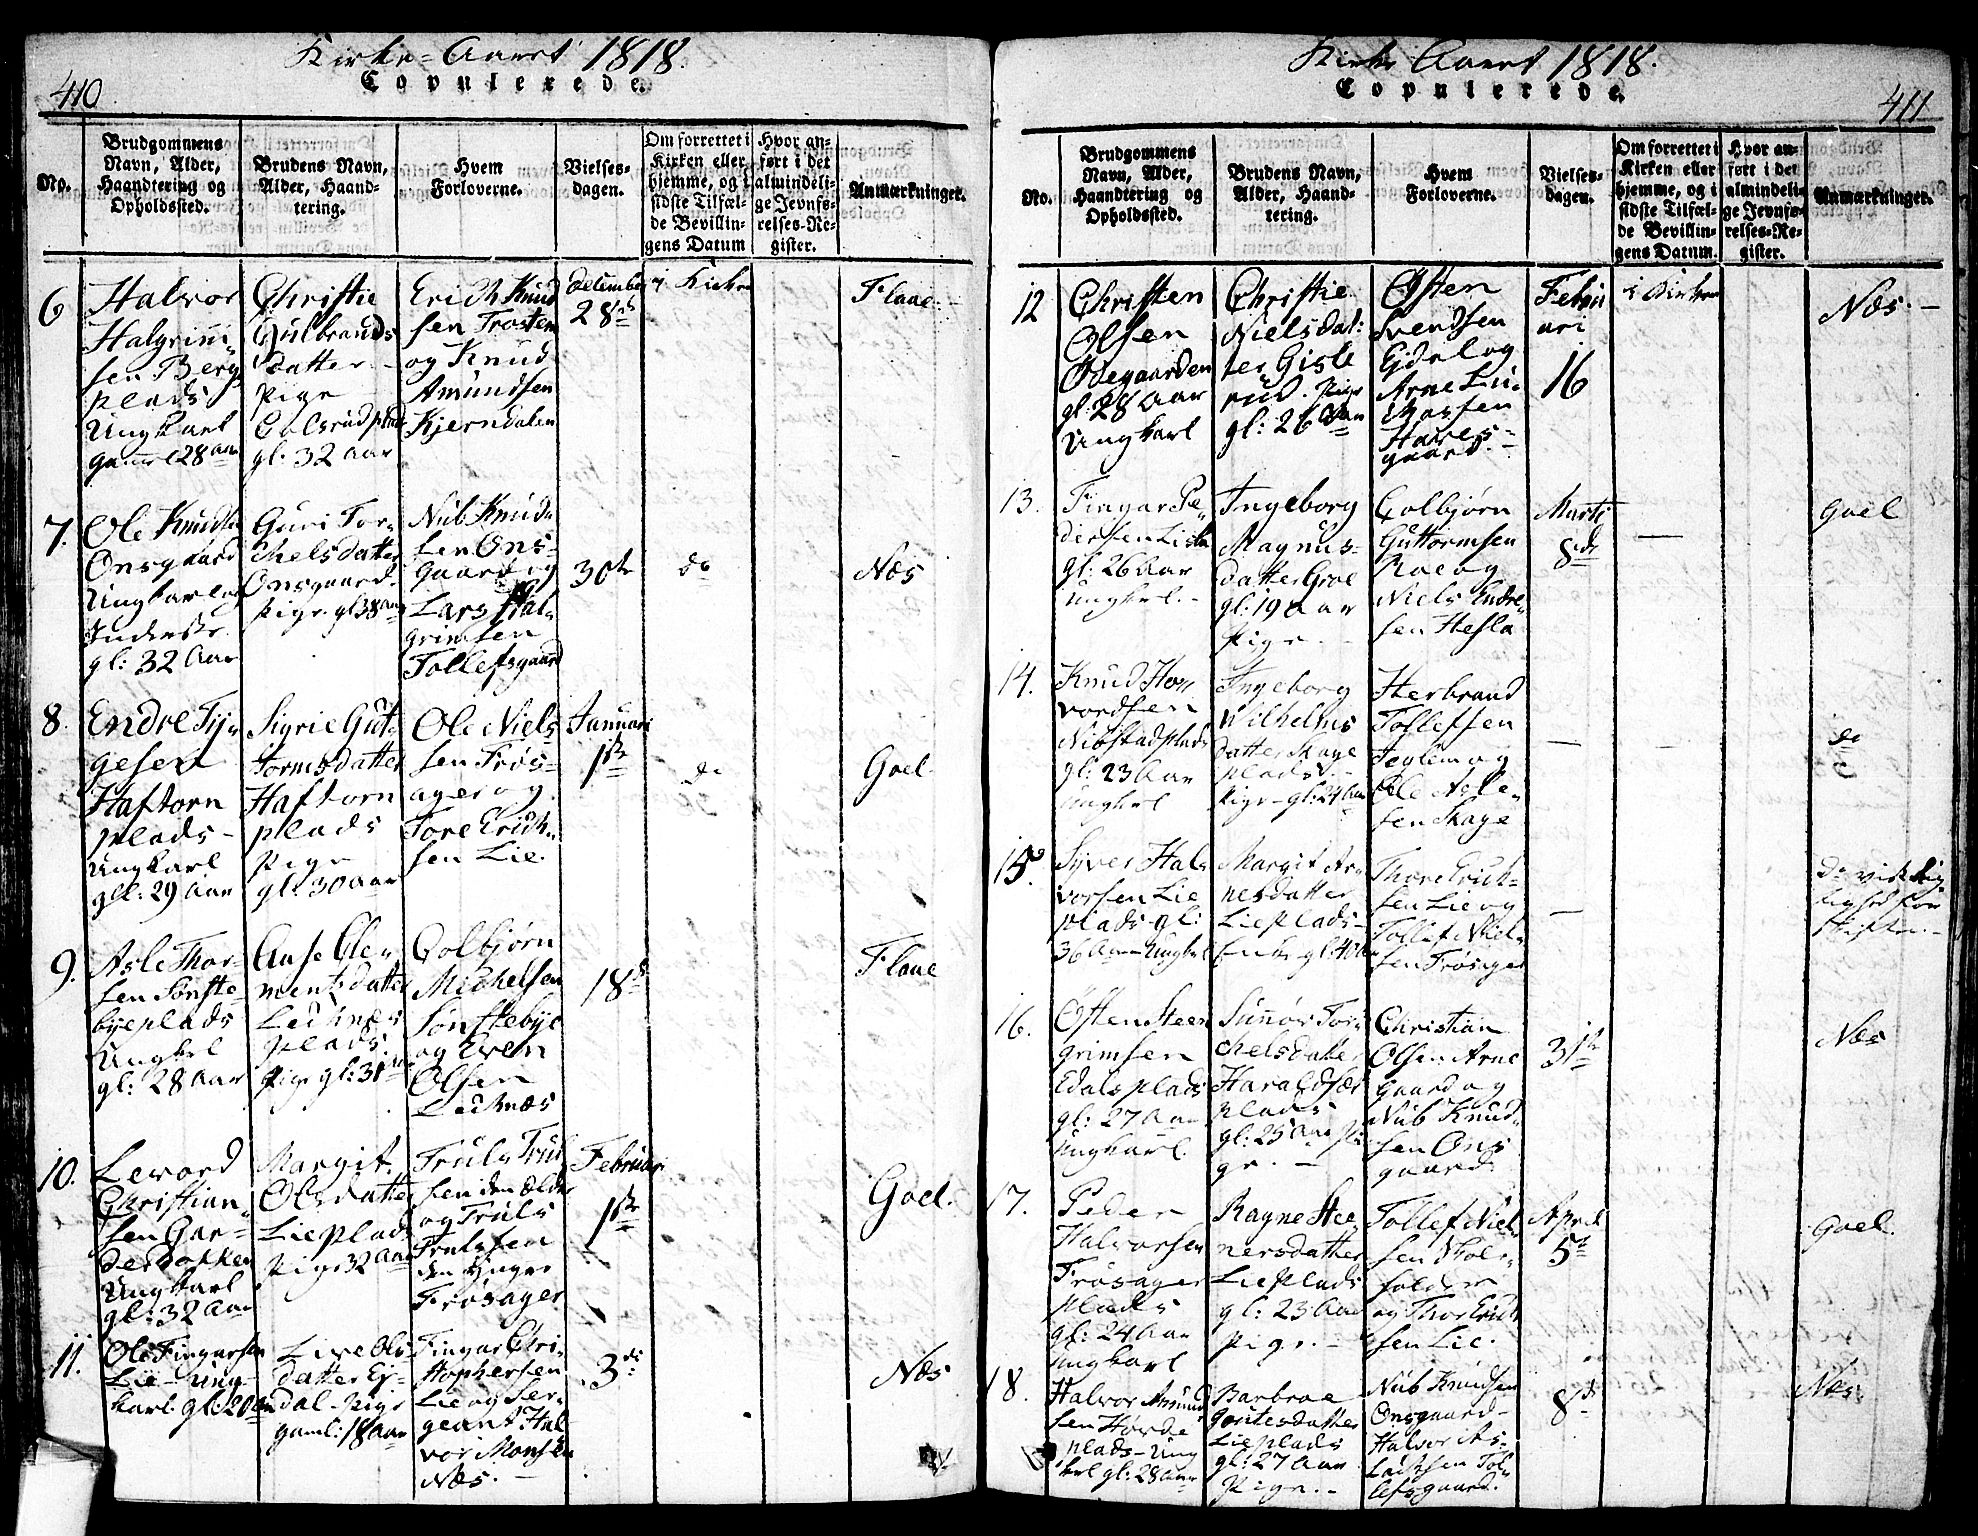 Kirke-Aaret 1818.
Copulerede.
410
No.
Brudgommens
Navn, Alder,
Haandtering og
Opholdssted.
Brudens Navn,
Alder, Haand-
tering.
Hvem
Forloverne.
Vielses-
dagen.
Om forrettet i
Kirken eller
hjemme, og i
sidste Tilfæl-
de Bevillin-
gens Datum
Hvor an-
ført i det
almindeli-
ge Jevnfø-
relses-Re-
gister.
Anmærkninger.
6
Halvor
Halgrim-
sen Berg
plads
Ungkarl
gaml 28 aar
Christie
Gulbrands
Datter -
Pige
Golsrud plads
gl: 32 aar
Erich Knud
sen Trostem
og Knud
Amundsen
Kjerndalen
December
28de
i Kirken
Flaae.
7.
Ole Knudsen
Onsgaard
Ungkarl og
Inderste
gl: 32 Aar
Guri Tor-
chelsdatter
Onsgaard.
Pige. gl 38 aar
Nub Knud-
sen Ons-
gaard og
Lars Hal-
grimsen
Tollefsgaard
30te
do
Næs
8.
Endre Try-
gesen
Haftorn
plads -
Ungkarl
gl: 29 Aar
Sigrie Gut-
tormsdatter
Haftorn
plads
Pige
gl: 30 aar
Ole Niels-
sen Frøs-
ager og
Tore Erich-
sen Lie.
Januari
1ste
do
Goel.
9.
Asle Thor-
sen Sønste-
byeplads
Ungkl
gl: 28 Aar
Aase Cle-
mentsdatter
Lecknes
plads
Pige gl: 31 aar
Colbjørn
Michelsen
Sønstebye
og Even
Olsen
Lecknæs
18de
Flaae
10.
Levord
Christian-
sen Gar-
derbakken
Ungkarl
gl: 32 Aar
Margit
Olsdatter
Lieplads
Pige 32 Aar
Truls Truls
sen den Ældre
og Truls
Trulssen
den Yngre
Frøsager
Februar
1ste
Goel.
11.
Ole Fingarsen
Lie - Ung-
karl. gl: 20 aar
Live Ols-
datter Ej-
dal - Pige
gaml: 18 aar
Fingar Chri-
stophersen
Lie og Ser-
geant Hal-
vor Monsen
Næs. -
3de
Næs
Kirke Aaret 1818.
Copulerede.
411
No.
Brudgommens
Navn, Alder,
Haandtering og
Opholdssted.
Brudens Navn,
Alder, Haand-
tering.
Hvem
Forloverne.
Vielses-
dagen.
Om forrettet i
Kirken eller
hjemme, og i
sidste Tilfæl-
de Bevillin-
gens Datum.
Hvor an-
ført i det
almindeli-
ge Jevnfø-
relses-Re-
gister.
Anmærkninger.
12
Christen
Olsen
Ødegaarden
gl: 28 Aar
Ungkarl
Christie
Nielsdat:
ter Gisle
rud. Pige
gl: 26 Aar
Østen
Svendsen
Ejdal og
Arne
Hares-
gaard.
Febru
ari
16
i Kirken
Næs. -
13.
Fingar Pe-
dersen Lie
gl: 26 Aar
Ungkl. -
Ingeborg
Magnus-
datter Groe
gl: 19 Aar
Pige. -
Colbjørn
Guttormsen
Roe og
Niels Endre-
sen Hesla
Marti
8de
Goel
14.
Knud Hou
vordsen
Nibstadplads
gl: 23 Aar
Ungkl
Ingeborg
Wilhelms
datter Skage
plads. -
Pige - gl: 24 Aar
Herbrand
Tollefsen
og
Ole Asle-
sen Skage
do
15.
Syver Hal-
vorsen Lie
plads gl:
36 Aar Ungkl
Margit Ar-
nesdatter
Lieplads -
Enke gl: 40 Aar
Thore Erich-
sen Lie og
Tollef Niel-
sen Frøsager
16.
Østen Steen
grimsen
Edalsplads
gl: 27 Aar
Ungkarl.
Sunøv Tor-
chelsdatter
Haraldsæt
plads
gl: 25 Aar Pi
ge. -
Christian
Olsen Arne
gaard og
Nub Knud-
sen Ons
gaard.
31te
Næs
17.
Peder
Halvorsen
Frøsager
plads
gl: 24 Aar
Ungkarl
Ragne Stee
nersdatter
Lieplads
gl: 23 Aar
Pige. -
Tollef Niel-
sen
og Thor Erich
sen Lie.
April
5te
Goel.
18.
Halvor Amund
sen
plads - Ung
karl gl: 28 Aar
Barbroe
Goutesdatter
Lieplads
gl: 27 Aar
Pige. -
Nub Knudsen
Onsgaard -
Halvor As-
lacksen Tol-
lefsgaard.
8de
Næs.